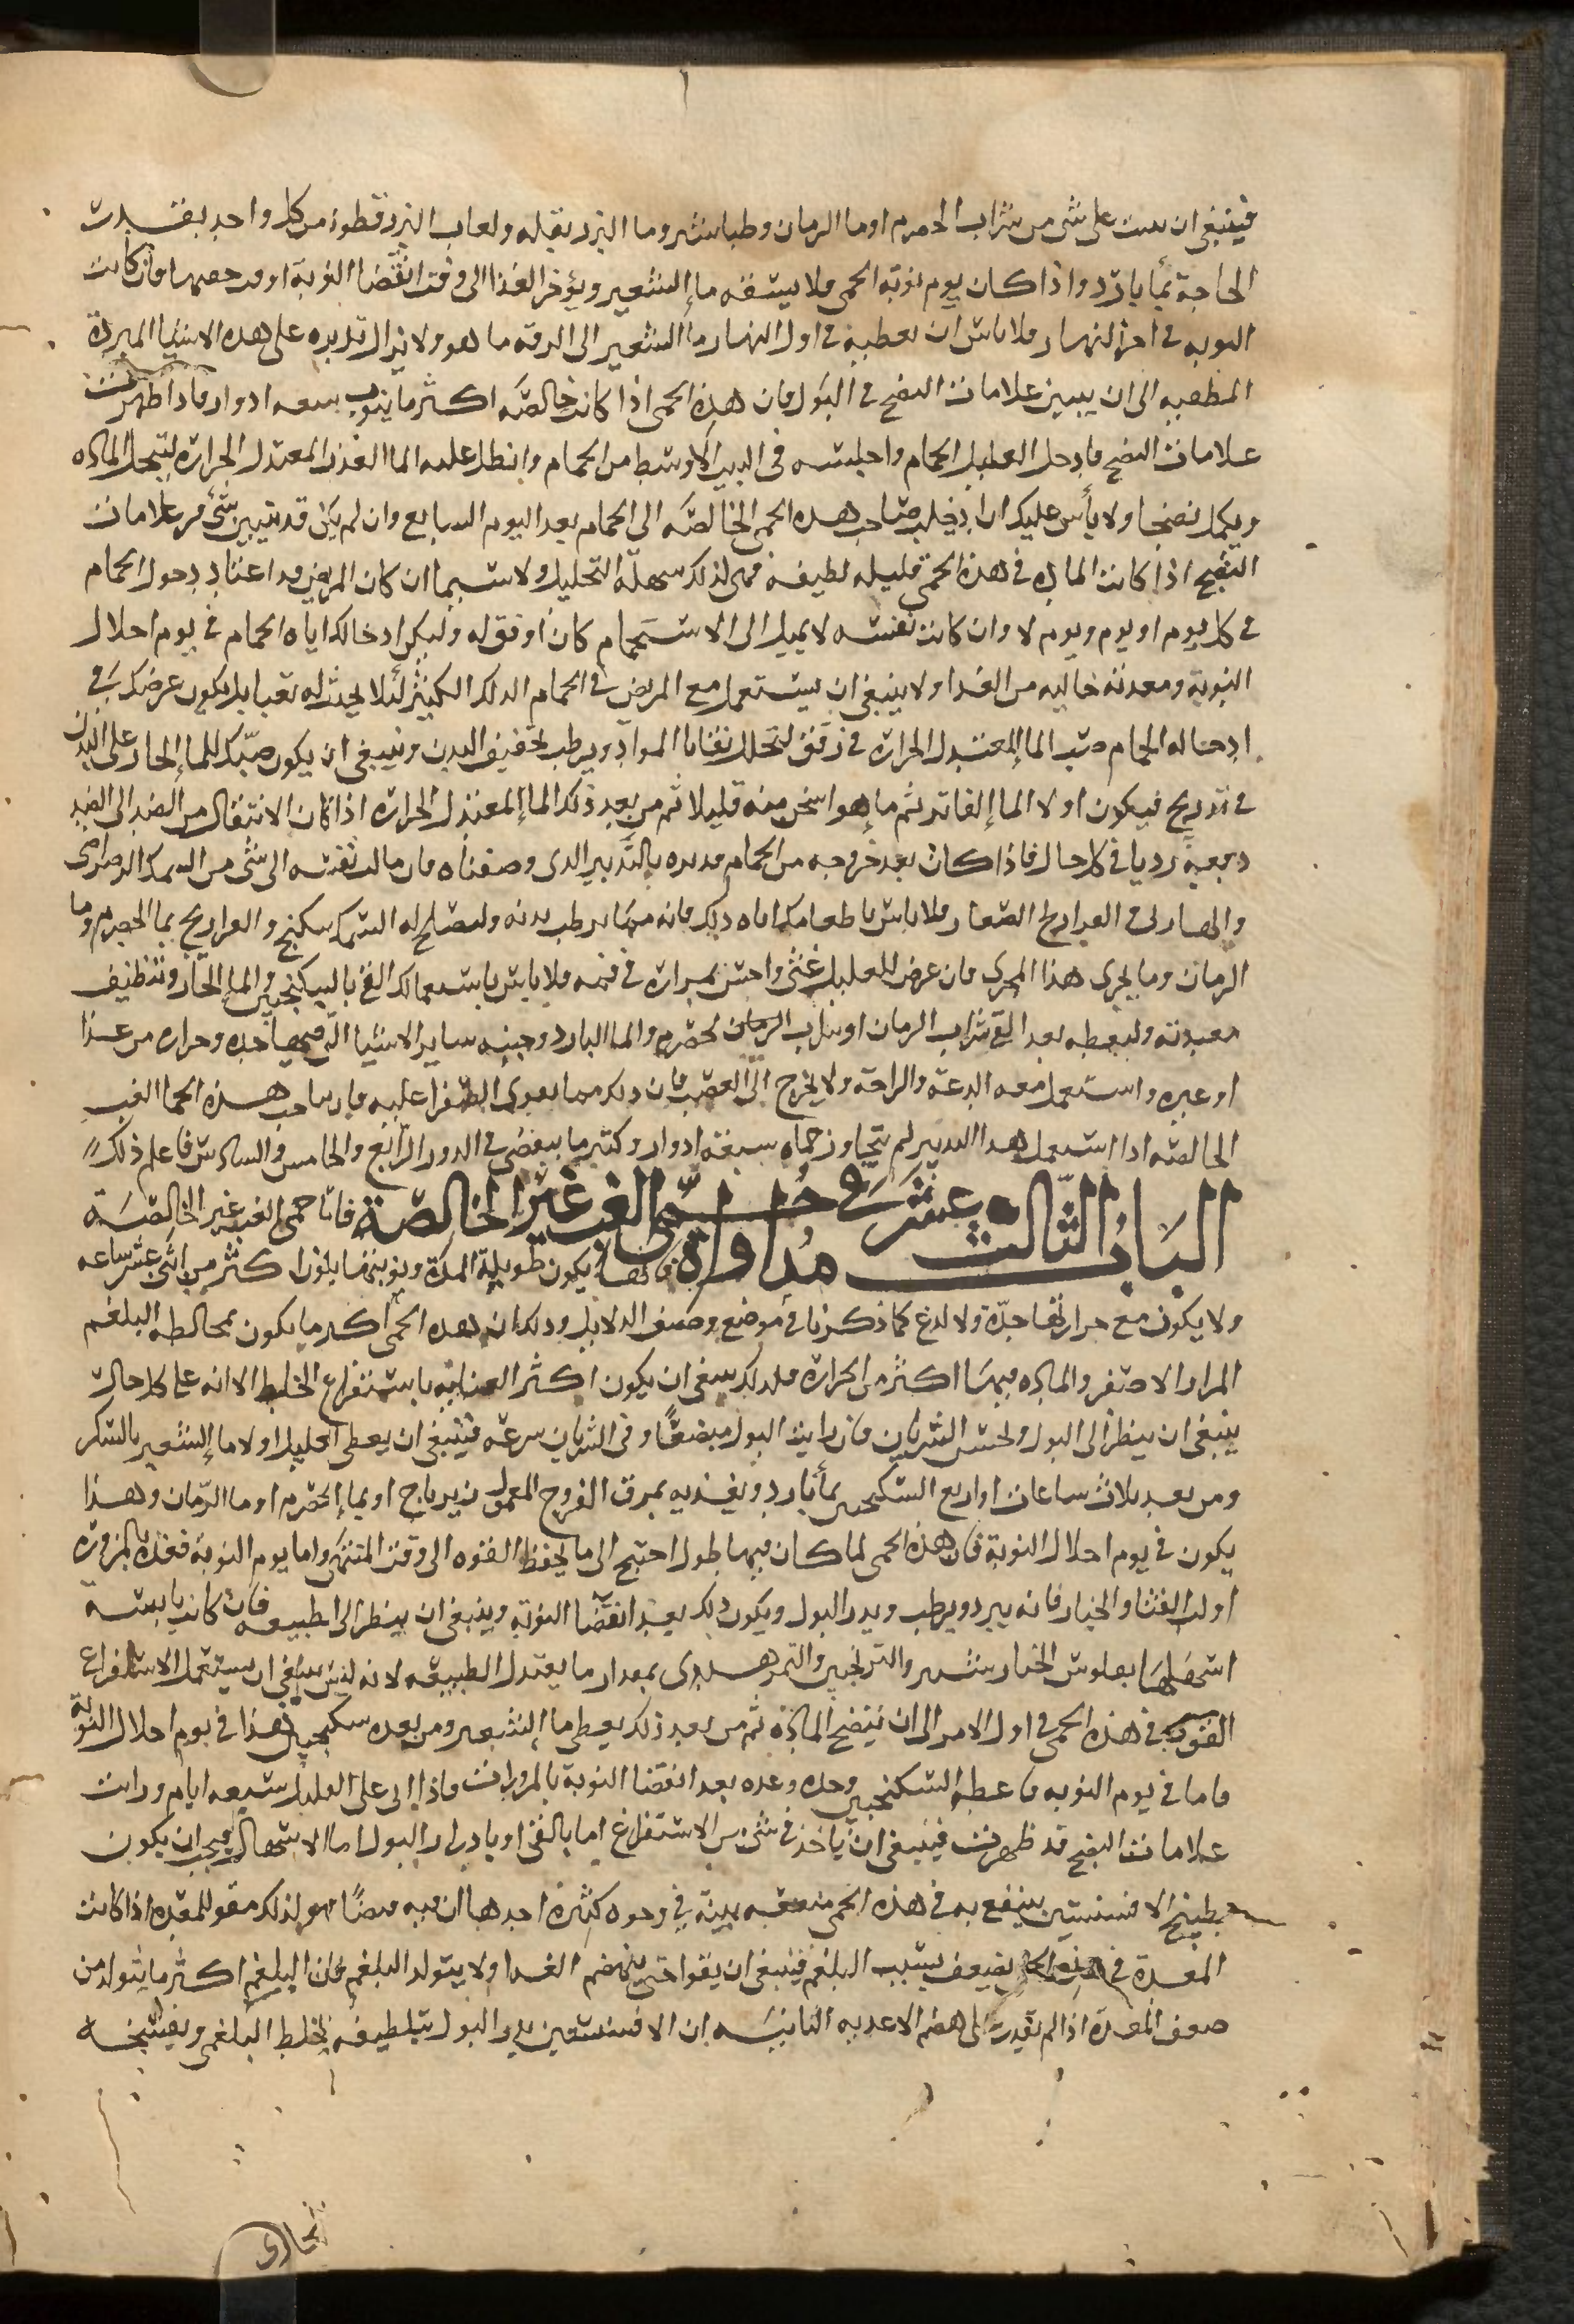 فينبغي ان يسقى شى من شراب الحصرم او ما الرمان وطباشير وما البزر بقله ولعاب البزر قطونا من كل واحد بقدر
الحاجة بما بارد واذا كان يوم نوبة الحمى فلا يسقه ما الشعير ويؤخر الغذا الى وقت انقضا النوبة او قد خفها فان كانت
النوبه فى اخر النهار فلا باس ان تعطيه فى اول النهار ما الشعير الى الرقه ما هو ولا تزال تدبره على هذه الاشيا المبردة
المطفيه الى ان يتبين علامات النضج فى البول فان هذه الحمى اذا كانت خالصة اكثر ما ينوب سبعه ادوار فاذا ظهرت
علامات النضج فادخل العليل الحمام واجلسه فى البيت الاوسط من الحمام وانطل عليه الما العذب المعتدل الحرارة لتتحلل الماده
ويكمل نضجها ولا بأس عليك ان ادخلت صاحب هذه الحمى الخالصة الى الحمام بعد اليوم السابع وان لم يكن قد تبين شى من علامات
النضج اذا كانت المادة فى هذه الحمى قليله لطيفه فهى لذلك سهلة التحليل ولا سيما ان كان المريض قد اعتاد دخول الحمام
فى كل يوم او يوم ويوم لا وان كانت نفسه لا يميل الى الاستحمام كان اوفق له وليكن ادخالك اياه الحمام فى يوم اخلال
النوبة ومعدته خاليه من الغذا ولا ينبغى ان يستعمل مع المريض فى الحمام الدلك الكثير لئلا يحدث له تعبا بل يكون غرضك فى
ادخاله الحمام صب الما المعتدل الحرارة فى رفق لتحلل بقايا المواد ويرطب تجفيف البدن وينبغى ان يكون صبك للما الحار على البدن
فى تدريج فيكون اولا الما الفاتر ثم ما هو اسخن منه قليلا ثم من بعد ذلك الما المعتدل الحرارة اذ كان الانتقال من الضد الى الضد
دفعة رديا فى كل حال فاذا كان بعد خروجه من الحمام فدبره بالتدبير الذى وصفناه فان مالت نفسه الى شى من السمك الرضراضى
والهازلى والفراريج الصغار فلا باس باطعامك اياه ذلك فانه مما يرطب بدنه وليصلح له السمك سكبنج والفراريج بما الحصرم وما
الرمان وما يجرى هذا المجرى فان عرض للعليل غثى واحس بمرارة فى فمه فلا باس باستعمالك القى بالسكنجبين والما الحار وتنظيف
معدته وليعطه بعد القى شراب الرمان او شراب الحصرم والما البارد وجنبه ساير الاشيا التى فيها حده وحراره من غذا
او غيره واستعمل معه الدعة والراحة ولا يخرج الى الغضب فان ذلك مما يقوى الصفرا عليه فان صاحب هذه الحما الغب
الخالصه اذا استعمل هذا التدبير لم تتجاوز حماه سبعة ادوار وكثير ما ينقضى فى الدور الرابع والخامس والسادس فاعلم ذلك
الباب الثالث عشر فى مداواة حمى الغب غير الخالصة فاما حمى الغب غير الخالصة
فانها يكون طويلة المدة ونوبتها يكون اكثر من اثنى عشر ساعه
ولا يكون مع حرارتها حدة ولا لدع كما ذكرنا فى موضع وصف الدلايل وذلك ان هذه الحمى اكثر ما يكون بمخالطه البلغم
المرار الاصفر والماده فيها اكثر من الحرارة فلذلك ينبغى ان يكون اكثر العنايه باستفراغ الخلط الا انه على كل حال
ينبغى ان ينظر الى البول ولجس الشريان فان رايت البول منصبغا وفى الشريان سرعه فينبغى ان يعطى العليل اولا ما الشعير بالسكر
ومن بعد ثلاث ساعات او اربع السكنجبين بما بارد ويغذيه بمرق الفروج المعمول زيرباج او بما الحصرم او ما الرمان وهذا
يكون فى يوم اخلال النوبة فان هذه الحمى لما كان فيها طول احتيج الى ما يحفظ القوه الى وقت المنتهى واما يوم النوبة فغذه بالمزورة
او لب القثا والخيار فانه يبرد ويرطب ويدر البول ويكون ذلك بعد انقضا النوبة وينبغى ان ينظر الى الطبيعه فان كانت يابسة
اسهلها بفلوس الخيار شنبر والترنجبين والتمر هندى بمقدار ما يعتدل الطبيعه لانه ليس ينبغى ان يستعمل الاستفراغ
القوى فى هذه الحمى فى اول الامر الى ان تنضج المادة ثم من بعد ذلك يعطى ما الشعير ومن بعده سكنجبين هذا فى يوم اخلال النوبة
فاما فى يوم النوبه فاعطه السكنجبين وحده وغذه بعد انقضا النوبة بالمزورات فاذا اتى على العليل سبعه ايام ورايت
علامات النضج قد ظهرت فينبغى ان ياخذ فى شى من الاستفراغ اما بالقى او بادرار البول اما الاسهال فيجب ان يكون
بطبيخ الافسنتين ينتفع به فى هذه الحمى منفعه بينة فى وجوه كثيرة احدها ان فيه قبضا فهو لذلك مقو للمعده اذا كانت
المعدة فى هذه الحمى تضعف بسبب البلغم فينبغى ان يقوا حتى ينهضم الغذا ولا يتولد البلغم فان البلغم اكثر ما يتولد من
ضعف المعدة اذا لم تقدر على هضم الاغذيه الثانيه ان الافسنتين يدر البول بتلطيفه الخلط البلغمى وتفتيحه